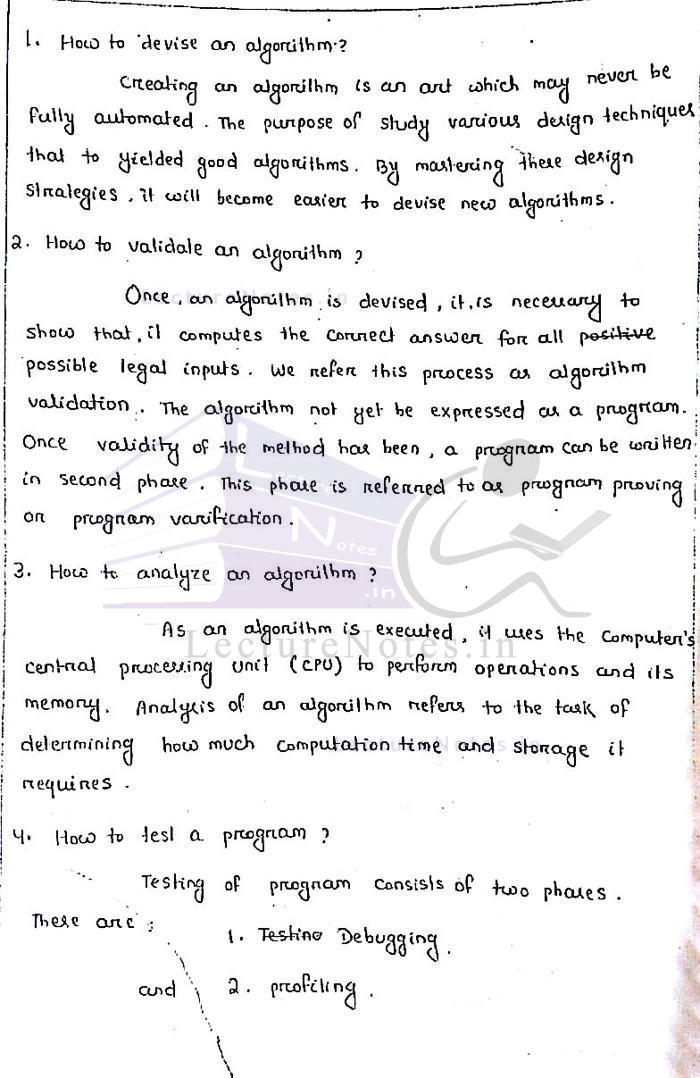 1. How to devise an algorithm?
Creating an algorithm is an art which may never be
fully automated. The purpose of study various design techniques
that to yielded good algorithms. By mastering these design
strategies, it will become easier to devise new algorithms.
2. How to validate an algorithm ?
Once, an algorithm is devised, it is necessary to
show that, it computes the correct answer for all positive
possible legal inputs. We refer this process as algorithm
validation. The algorithm not yet be expressed as a program.
Once validity of the method has been, a program can be written
in second phase. This phase is referred to as program proving
or program varification.
3. How to analyze an algorithm ?
As an algorithm is executed, it uses the Computer's
central processing unit (CPU) to perform operations and its
memory. Analysis of an algorithm refers to the task of
determining how much computation time and storage it
requires.
4. How to test a program ?
Testing of program consists of two phases.
These are :
1. Testing Debugging.
and 2. profiling.
Lecture
Notes
.in
LectureNotes.in